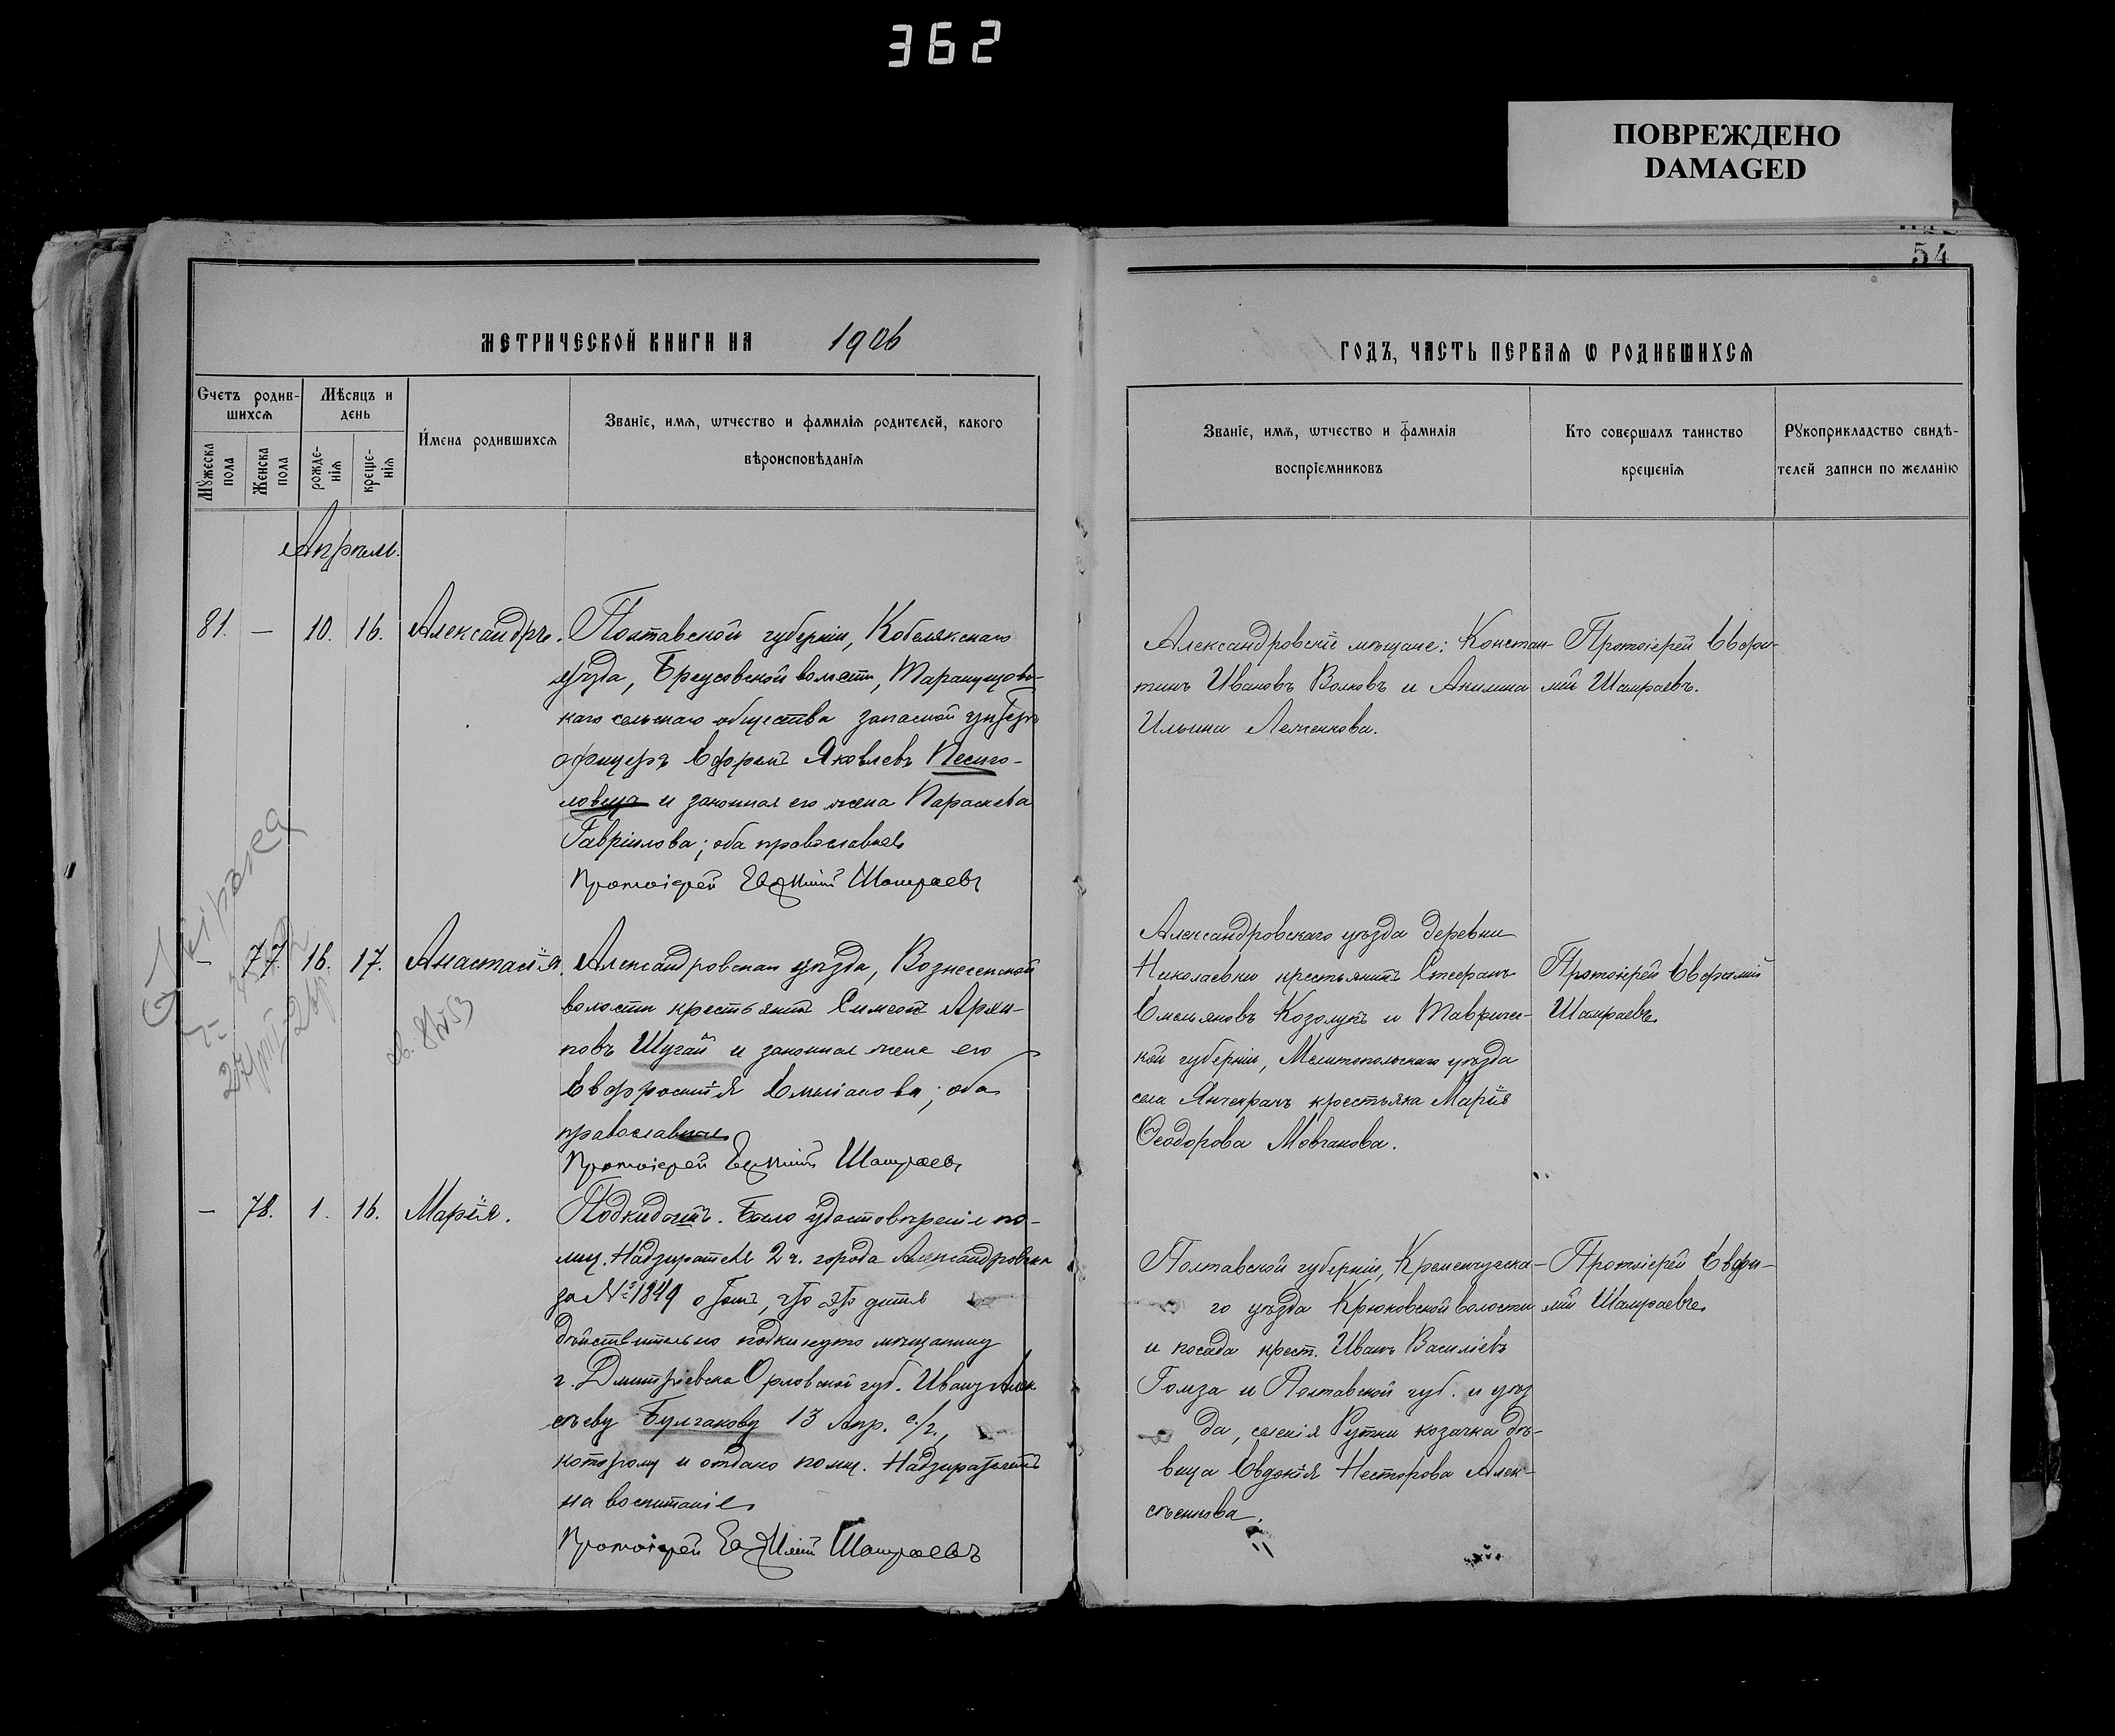 362
ПОВРЕЖДЕНО
DAMAGED
54
МЕТРИЧЕСКОЙ КНИГИ НА 1906
ГОДЪ, ЧАСТЬ ПЕРВАЯ Ѡ РОДИВШИХСЯ
Счетъ родив-
шихся
Мѣсяцъ и
день
Мужеска
пола
Женска
пола
рожде-
нія
креще-
нія
Имена родившихся
Званіе, имя, ѡтчество и фамилія родителей, какого
вѣроисповѣданія
Званіе, имя, ѡтчество и фамилія
воспріемниковъ
Кто совершалъ таинство
крещенія
Рукоприкладство свидѣ-
телей записи по желанію
Апрель.
81. — 10. 16. Александръ.
Полтавской губерніи, Кобелякскаго
уѣзда, Бреусовской волости,
каго сельскаго общества запасной унтеръ
офицеръ Ефремъ Яковлевъ Песиго-
ловецъ и законная его жена Параскева
Гавріилова; оба православные
Протоіерей Евѳимій Шамраевъ
Александровскіе мѣщане: Констан-
тинъ Ивановъ Волковъ и Акилина
Ильина
Протоіерей Евфи-
мій Шамраевъ.
— 77. 16. 17. Анастасія.
Александровскаго уѣзда, Вознесенской
волости крестьянинъ Симеонъ Архи-
повъ Шугай и законная жена его
Евфросинія Емиліанова; оба
православные
Протоіерей Евѳимій Шамраевъ
Александровскаго уѣзда деревни
Николаевки крестьянинъ Стефанъ
Емельяновъ Козолупъ и Тавричес-
кой губерніи, Мелитопольскаго уѣзда
села Янчекракъ крестьянка Марія
Ѳеодорова Мовчанова.
Протоіерей Евфимій
Шамраевъ.
— 78. 1. 16. Марія.
Подкидышъ. Было удостовѣреніе по-
лиц. Надзирателя 2 ч. города Александровска
за № 1849 о томъ, что это дитя
дѣйствительно подкинуто мѣщанину
г. Дмитріевска Орловской губ. Ивану Алек-
сѣеву Булгакову 13 Апр. с/г.,
которому и отдано полиц. Надзирателемъ
на воспитаніе
Протоіерей Евѳимій Шамраевъ
Полтавской губерніи, Кременчугска-
го уѣзда Крюковской волости
и посада крест. Иванъ Василіевъ
Гомза и Полтавской губ. и уѣз
да, селенія козачка дѣ-
вица Евдокія Несторова Алек-
сѣенкова.
Протоіерей Евфи-
мій Шамраевъ